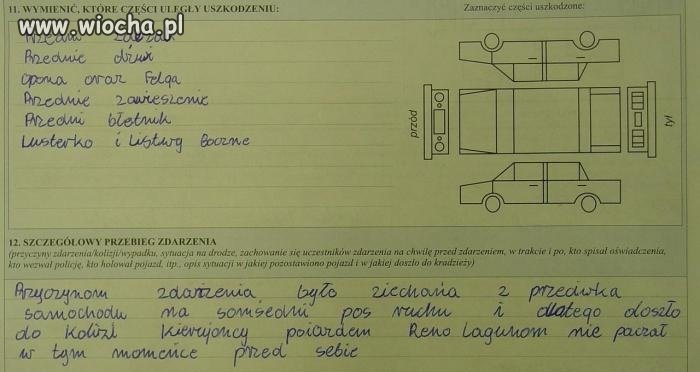 11. WYMIENIĆ, KTÓRE CZĘŚCI ULEGŁY USZKODZENIU:
Zaznaczyć części uszkodzone:
www.wiocha.pl
Przedni zderzak
Przednie drzwi
Opona oraz Felga
Przednie zawieszenie
Przedni błotnik
Lusterko i Listwy Boczne
przód
tył
12. SZCZEGÓŁOWY PRZEBIEG ZDARZENIA
(przyczyny zdarzenia/kolizji/wypadku, sytuacja na drodze, zachowanie się uczestników zdarzenia na chwilę przed zdarzeniem, w trakcie i po, kto spisał oświadczenia,
kto wezwał policję, kto holował pojazd, itp., opis sytuacji w jakiej pozostawiono pojazd i w jakiej doszło do kradzieży)
Przyczynom zdarzenia było ziechania z przeciwka
samochodu na somsedni pos ruchu i dlatego doszło
do Kolizi Kierujoncy poiazdem Reno Lagunom nie paczał
w tym momeńce przed sebie